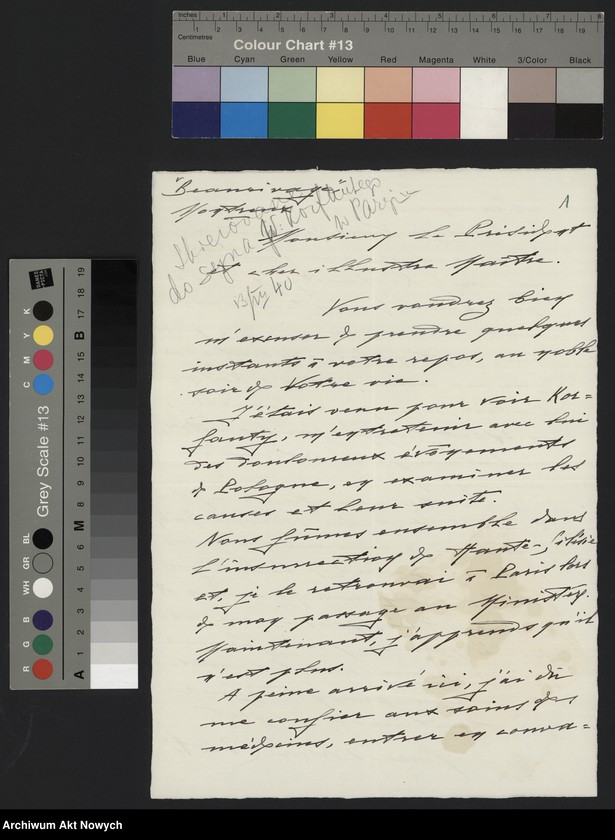 Inches 1 2 3 4 5 6 7 8
Centimetres 1 2 3 4 5 6 7 8 9 10 11 12 13 14 15 16 17 18 19
Colour Chart #13
Blue Cyan Green Yellow Red Magenta White 3/Color Black
"Beaurivage"
Montreux
1
do Sejna W. Korfantego
w Paryżu
Monsieur le Président
et cher illustre Maître.
B/IV 40
Vous voudrez bien
m'excuser de prendre quelques
instants à votre repos, au noble
soir de Votre vie.
J'étais venu pour voir Kor=
fanty, m'entretenir avec lui
des douloureux évènements
de Pologne, en examiner les
causes et leur suite.
Nous fûmes ensemble dans
l'insurrection de Haute-Silésie
et, je le retrouvai à Paris lors
de mon passage au Ministère.
Maintenant, j'apprends qu'il
n'est plus.
A peine arrivé ici, j'ai dû
me confier aux soins des
médecins, entrer en conva=
Grey Scale #13
R G B WH GR BL C M Y K
A 1 2 3 4 5 6 M 8 9 10 11 12 13 14 15 B 17 18 19
Archiwum Akt Nowych